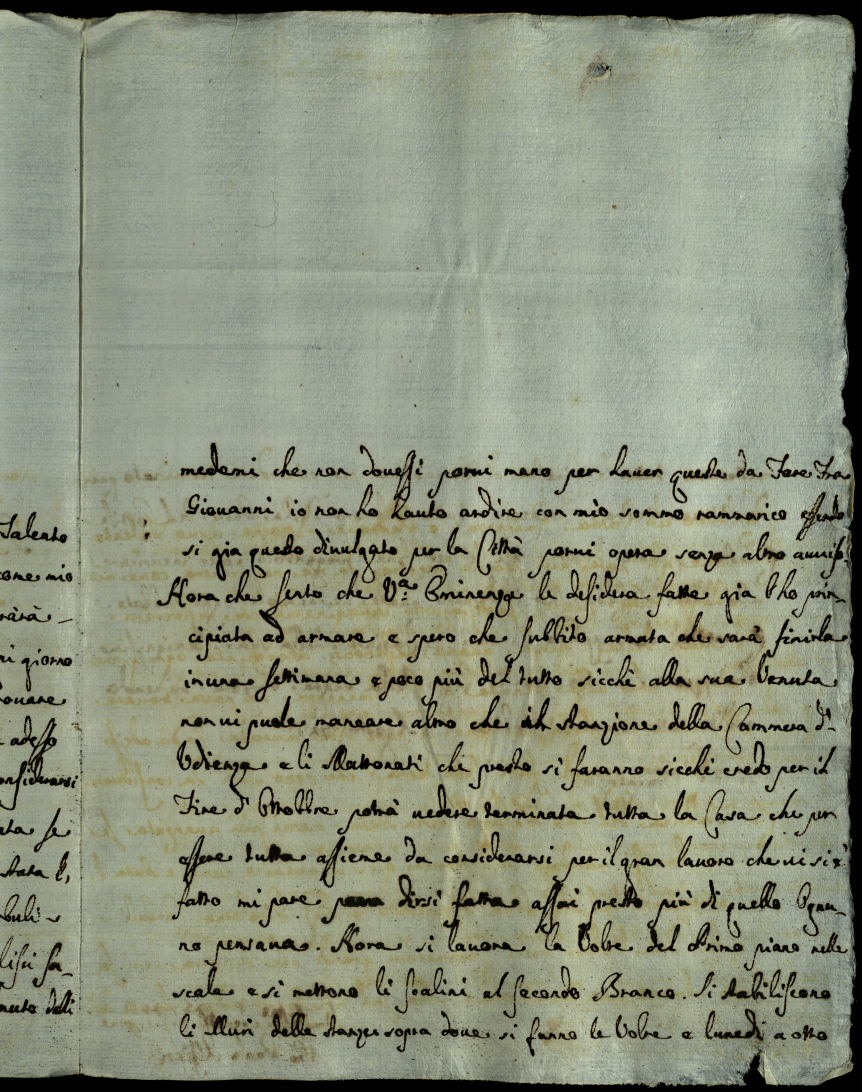 Talento
come mio
rarà –
ni giorno
ouare
adesso
onsiderarsi
ata se
stata l,
buli –
lisci fa–
nuto delli
medemi che non douessi porui mano per hauer queste da Fare Fra
Giouanni io non ho hauto ardire con mio sommo rammarico essendo
si gia questo diuulgato per la Città porui opera senza altro auuiso.
Hora che sento che V.ª Eminenza le desidera fatte gia l'ho prin–
cipiata ad armare e spero che subbito armata che sarà finirla
in una settimana e poco più del tutto sicchè alla sua Venuta
non ui puole mancare altro che il stanzione della Cammera d'
Udienza e li Mattonati che presto si faranno sicchè credo per il
Fine d' Ottobre potrà uedere terminata tutta la Casa che per
essere tutta assieme da considerarsi per il gran lauoro che ui si è
fatto mi pare dirsi fatta assai presto più di quello Ognu–
no pensaua. Hora si lauora la Volte del Primo piano nelle
scale e si mettono li scalini al secondo Branco. Si stabiliscono
li Muri delle stanze sopra doue si fanno le Volte e lunedì a otto